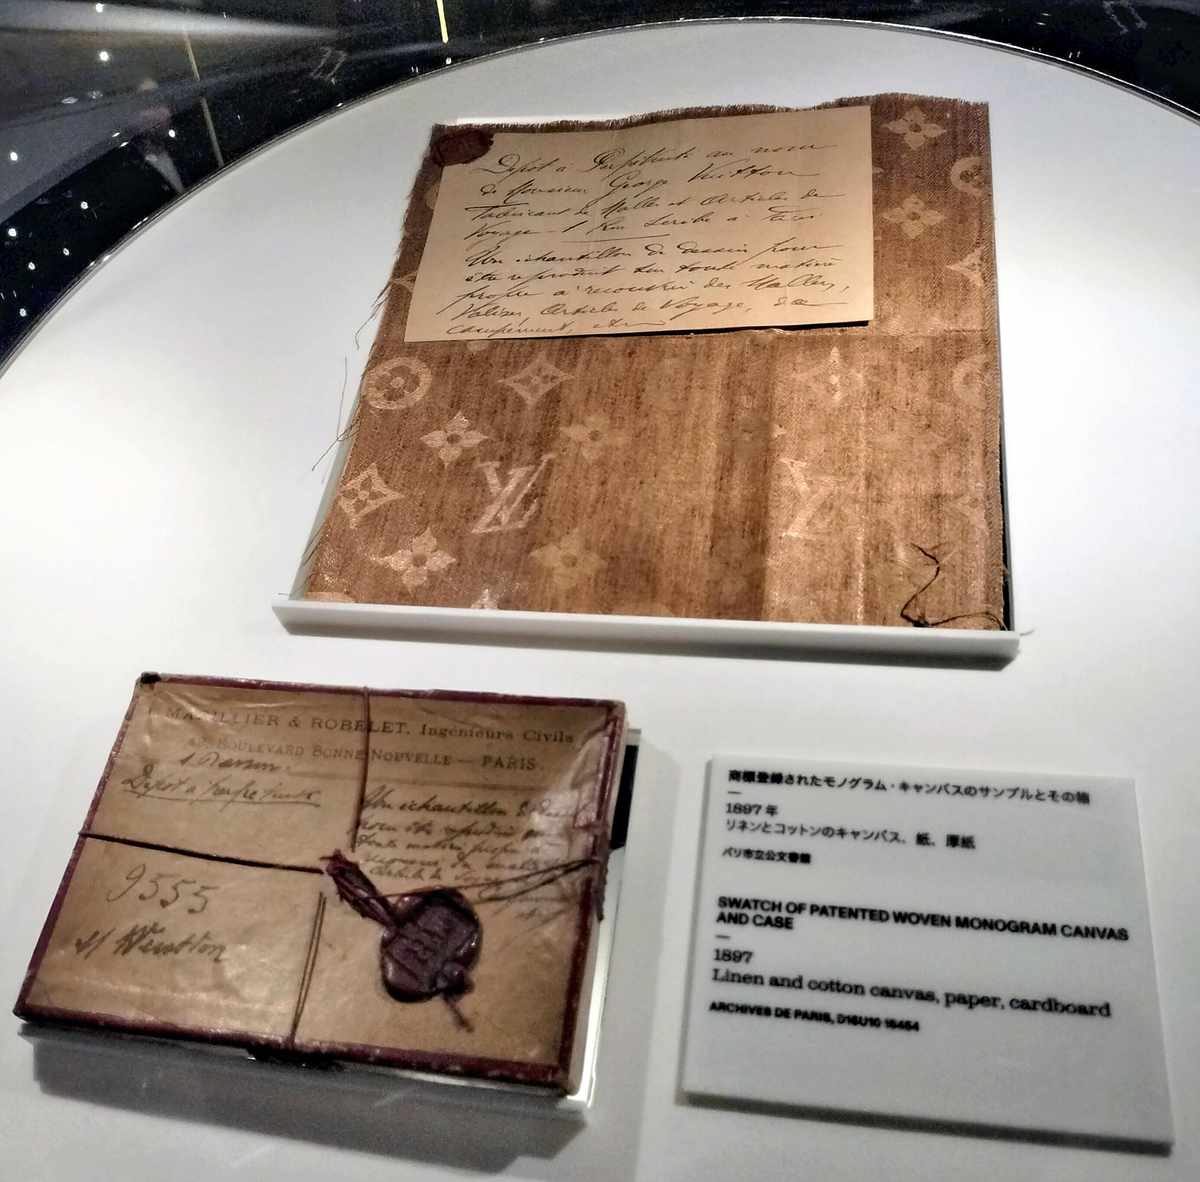 Dépot à Perpétuité au nom
de Monsieur George Vuitton
Fabricant de Malles et Articles de
Voyage - 1 Rue Scribe à Paris
Un échantillon de dessin pour
être reproduit sur toute matière
propre à recouvrir des Malles,
Valises, Articles de Voyage, de
campement, etc
LV
& ROBELET, Ingénieurs Civils
BOULEVARD BONNE NOUVELLE — PARIS
Dépot à Perpétuité
Un échantillon de
pour être reproduit
toute matière propre à
9555
商標登録されたモノグラム・キャンバスのサンプルとその箱
1897年
リネンとコットンのキャンバス、紙、厚紙
パリ市立公文書館
SWATCH OF PATENTED WOVEN MONOGRAM CANVAS
AND CASE
1897
Linen and cotton canvas, paper, cardboard
ARCHIVES DE PARIS, D16U10 16464